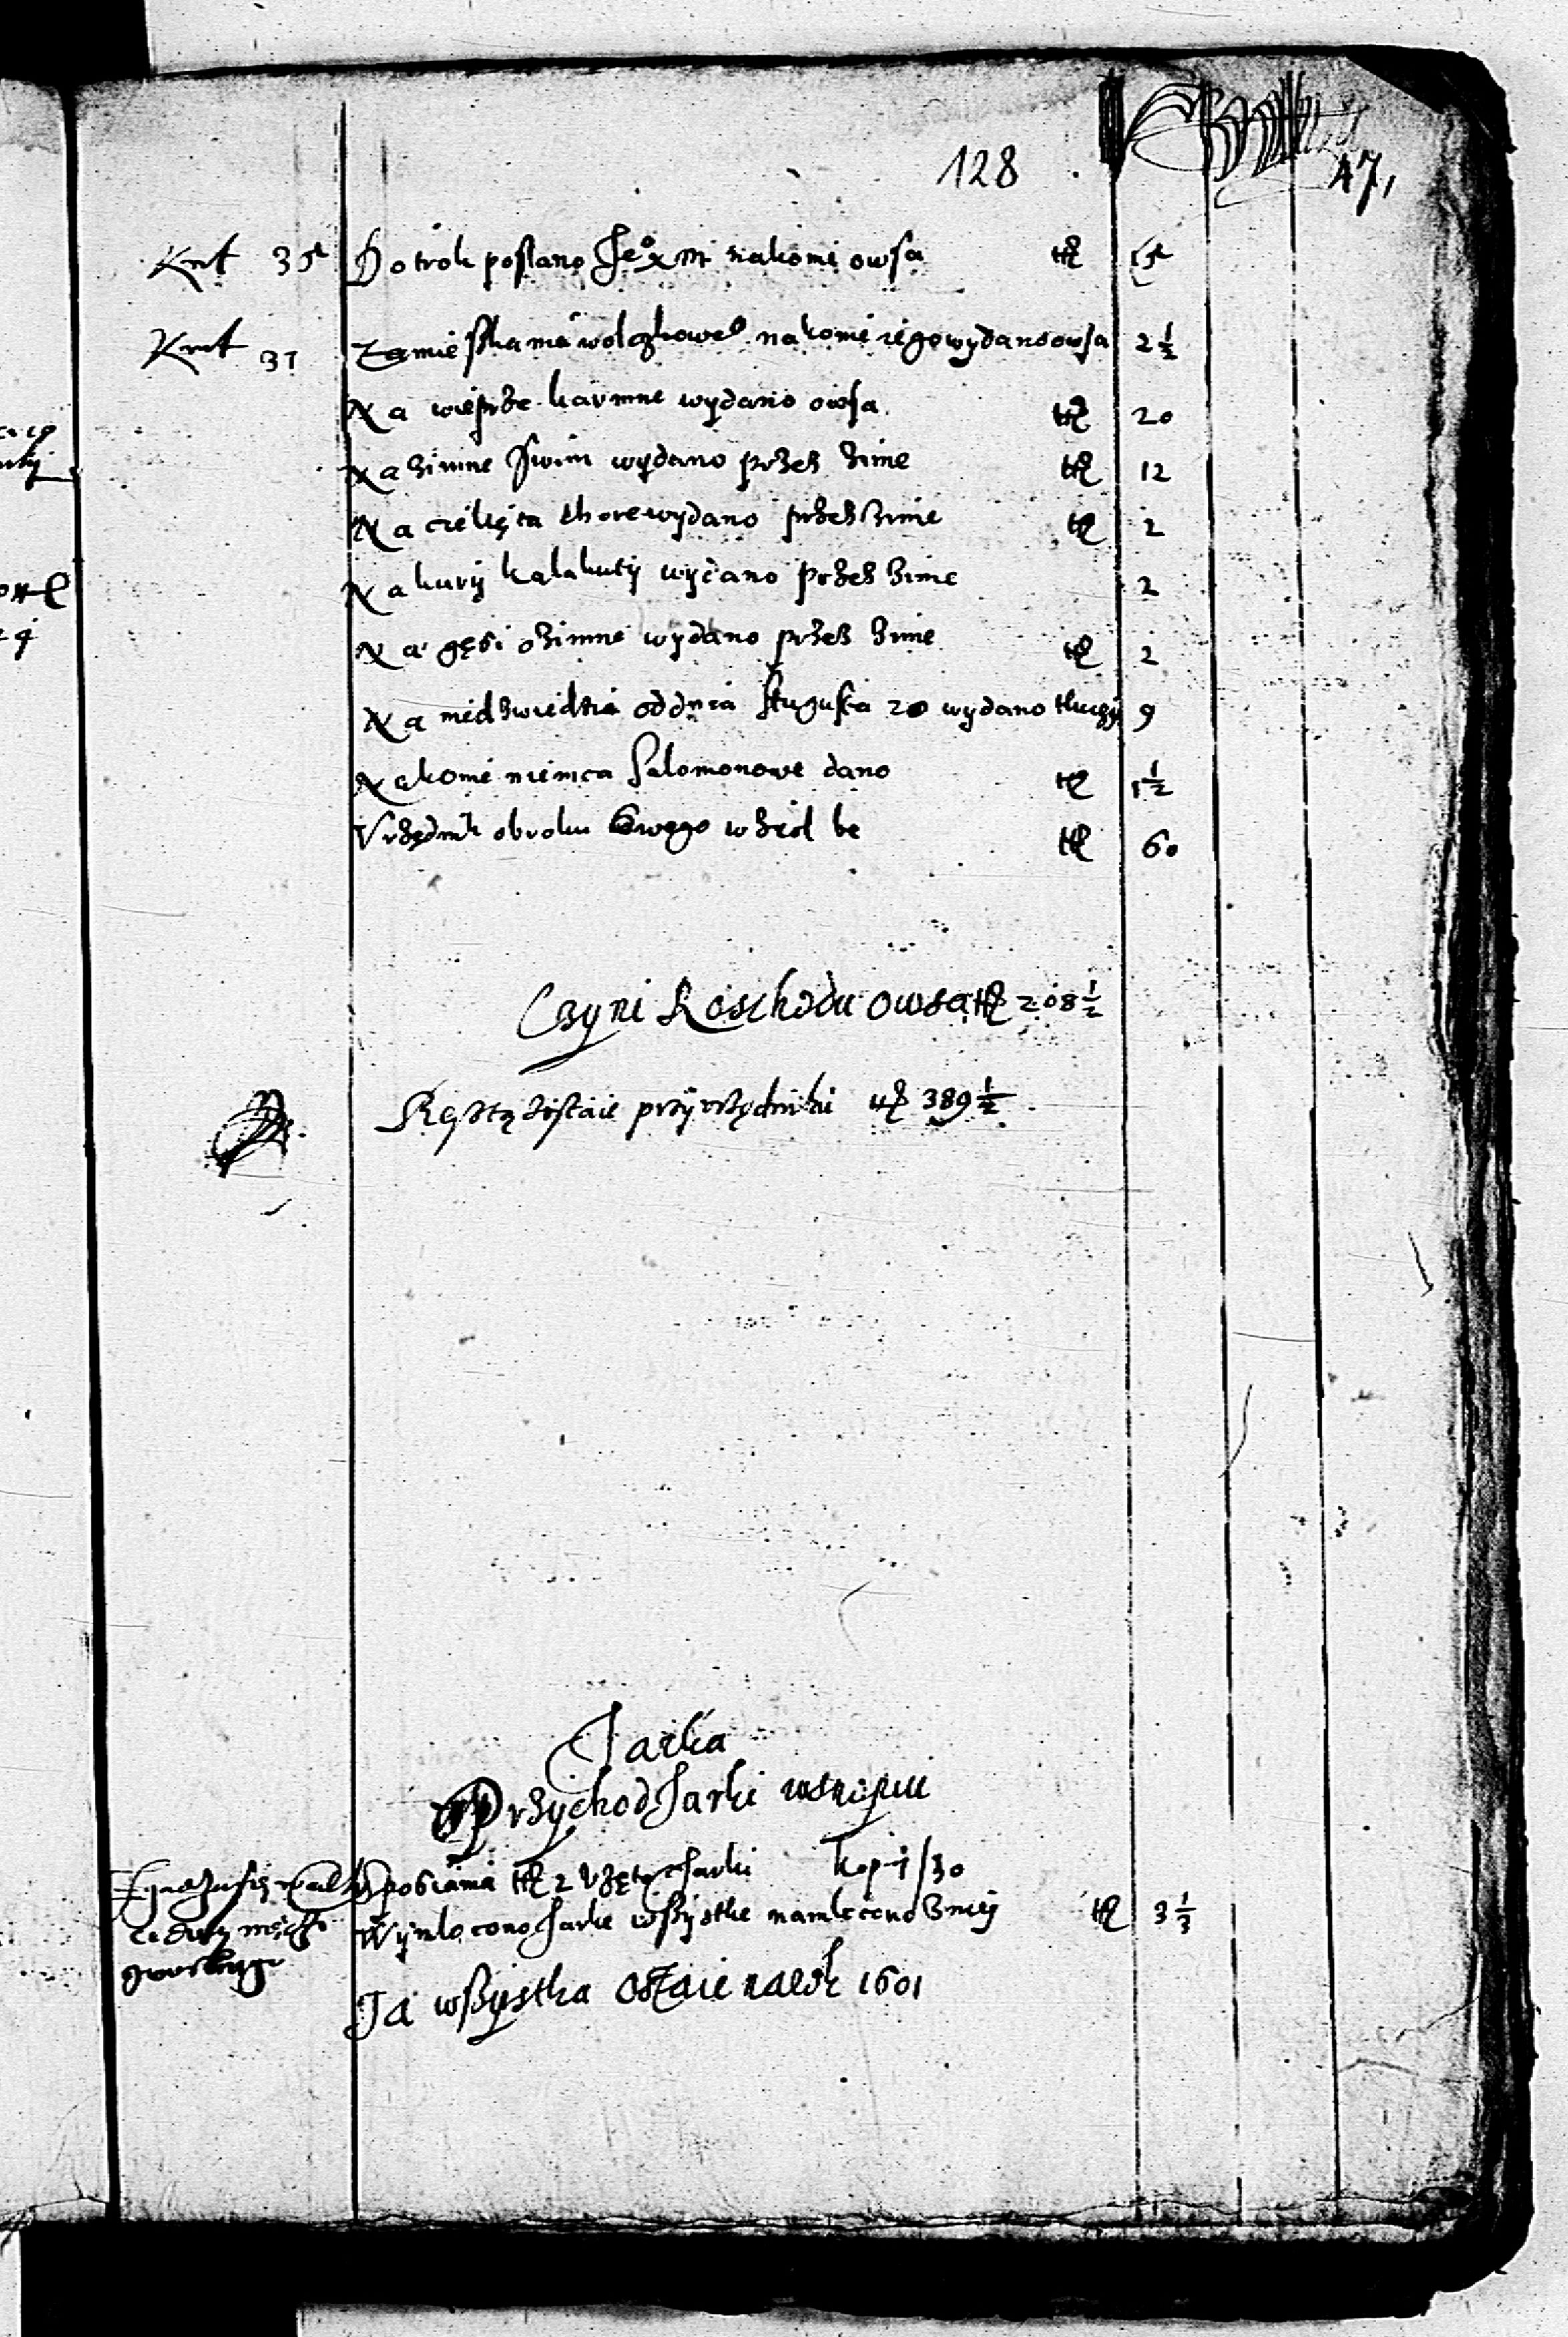 128
47,
Kwt 35 Do trok posłano Je° X M na konie owsa tꝶ 15
Kwt 31 Zamieszkania wolczkowe na konie iego wydano owsa 2 ½
Na wieprze karmne wydano owsa tꝶ 20
Na zimne swini wydano przez zime tꝶ 12
Na cielięta chore wydano przez zime tꝶ 2
Na kury kalakuty wydano przez zime 2
Na gęsi ozimne wydano przez zime tꝶ 2
Na niedzwiedzia od dnia Augusta 20 wydano 9
Na konie niemca Salomonowe dano tꝶ 1 ½
Vrzędnik obroku swego wziol be tꝶ 60
Czyni Roschodu owsa tꝶ 208 ½
Resztą zostaie przy vrzędniku tꝶ 389 ½
Jarka
Przychod Jarki w snopiu
posiania tꝶ 2 Vzęto Jarki kop 1/30
Wymlocono Jarke wszystke namlocono z niey tꝶ 3 ⅓
Ta wszystka ostaie na rok 1601